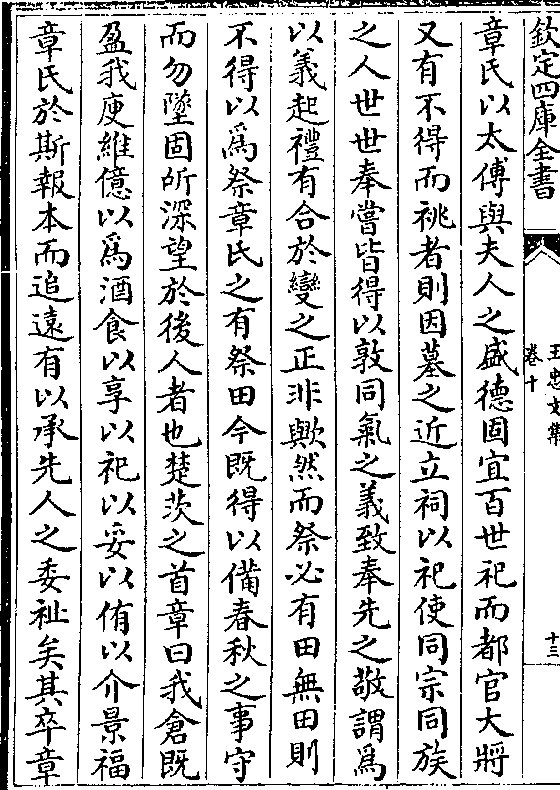 欽定四庫全書
王忠文集
卷十
十三
章氏以太傅與夫人之盛德固宜百世祀而都官大將
又有不得而祧者則因墓之近立祠以祀使同宗同族
之人世世奉嘗皆得以敦同氣之義致奉先之敬謂為
以義起禮有合於變之正非歟然而祭必有田無田則
不得以為祭章氏之有祭田今既得以備春秋之事守
而勿墜固所深望於後人者也楚茨之首章曰我倉既
盈我庾維億以為酒食以享以祀以妥以侑以介景福
章氏於斯報本而追遠有以承先人之委祉矣其卒章